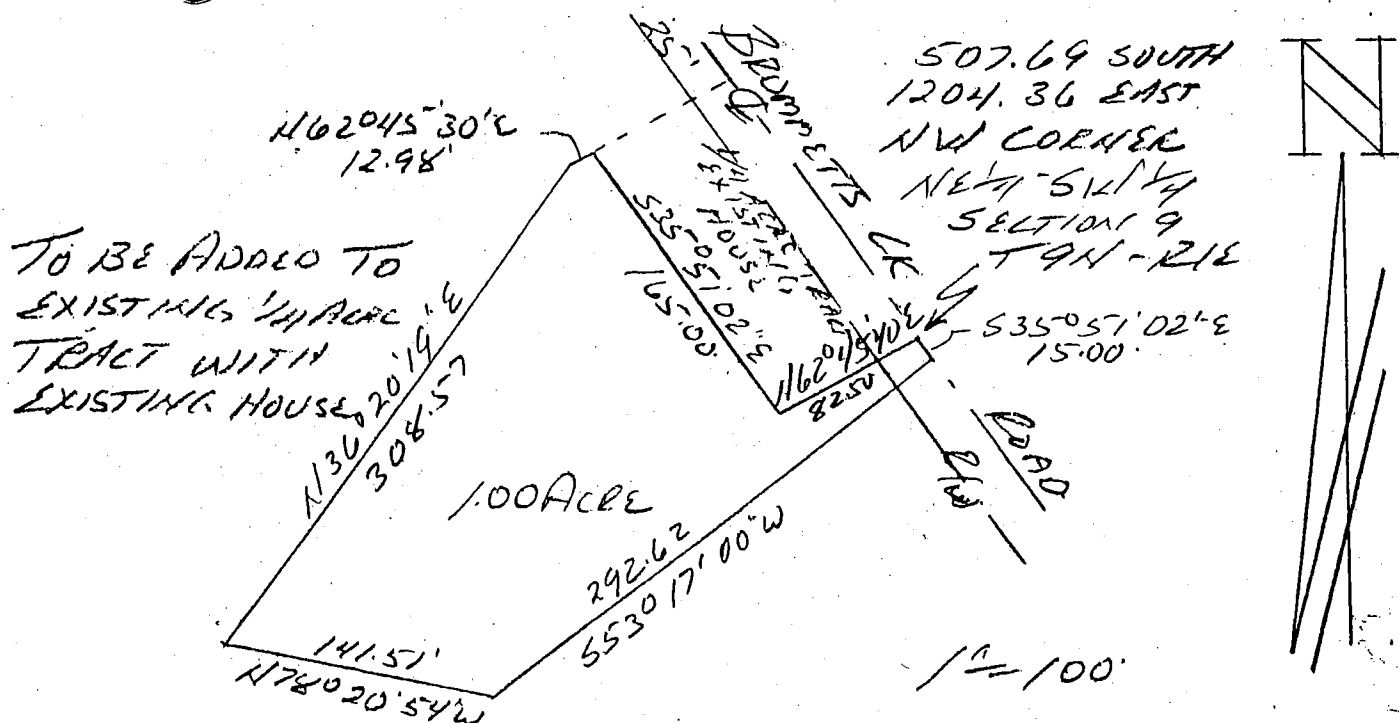 N62°45'30"E
12.98'
TO BE ADDED TO
EXISTING 1/4 ACRE
TRACT WITH
EXISTING HOUSE
N36°20'19"E
308.57
1.00 ACRE
141.51'
N78°20'54"W
292.62
S53°17'00"W
S35°51'02"E
165.00
1/4 ACRE TRACT
EXISTING
HOUSE
N62°45'40"E
82.50
25'
BRUMMETTS CK
ROAD
R/W
507.69 SOUTH
1204.36 EAST
NW CORNER
NE1/4-SW1/4
SECTION 9
T9N-R1E
S35°51'02"E
15.00'
1"=100'
N